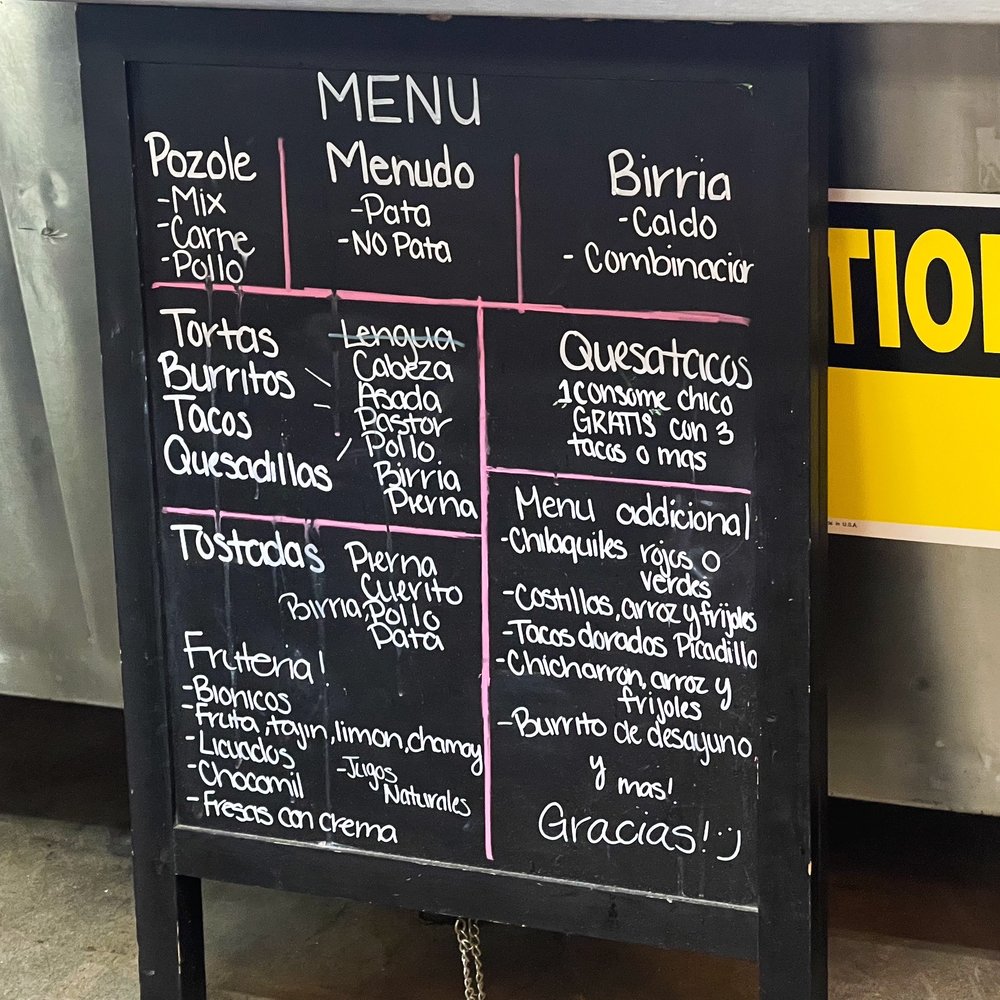 MENU
Pozole
-Mix
-Carne
-Pollo
Menudo
-Pata
-NO Pata
Birria
-Caldo
-Combinacion
Tortas
Burritos
Tacos
Quesadillas
Lengua
Cabeza
Asada
Pastor
Pollo
Birria
Pierna
Quesatacos
1 consome chico
GRATIS con 3
tacos o mas
Tostadas
Pierna
Cuerito
Birria, Pollo
Pata
Fruteria!
-Bionicos
-Fruta, tajin, limon, chamoy
-Licuados
-Chocomil
-Fresas con crema
-Jugos
Naturales
Menu addicional
-Chilaquiles rojos o
verdes
-Costillas, arroz y frijoles
-Tacos dorados Picadillo
-Chicharron, arroz y
frijoles
-Burrito de desayuno
y mas!
Gracias! :)
TION
in U.S.A